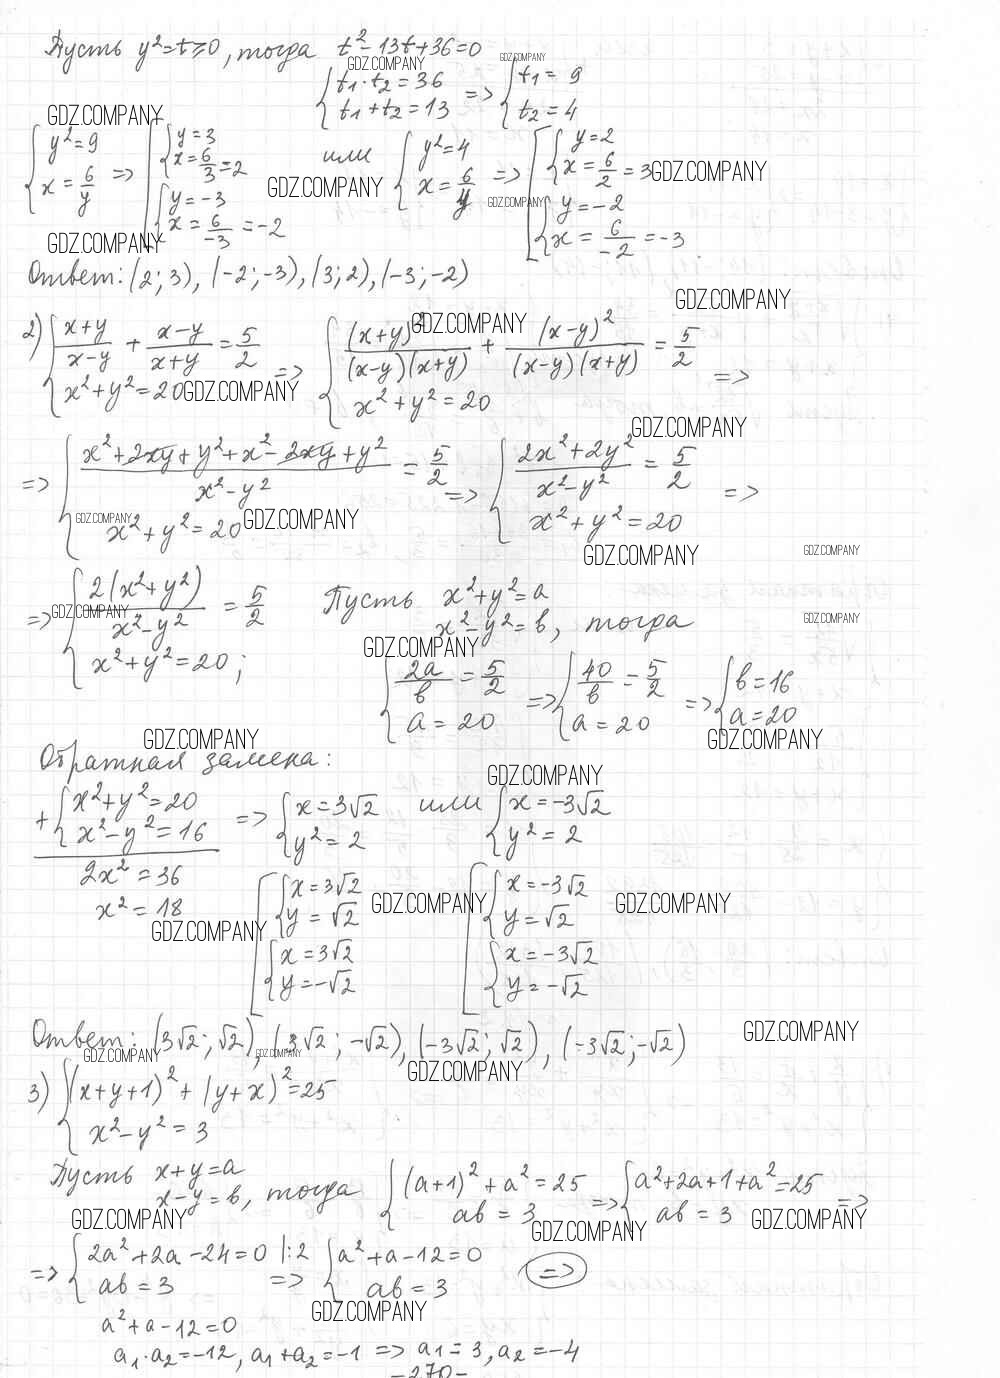 Пусть y²=t≥0, тогда t²-13t+36=0
GDZ.COMPANY GDZ.COMPANY
{t₁·t₂=36; t₁+t₂=13 => {t₁=9; t₂=4
GDZ.COMPANY
{y²=9; x=6/y => [{y=3; x=6/3=2; {y=-3; x=6/-3=-2 или {y²=4; x=6/y => [{y=2; x=6/2=3; {y=-2; x=6/-2=-3
GDZ.COMPANY GDZ.COMPANY GDZ.COMPANY
GDZ.COMPANY
Ответ: (2;3), (-2;-3), (3;2), (-3;-2)
GDZ.COMPANY
2) {(x+y)/(x-y) + (x-y)/(x+y) = 5/2; x²+y²=20 => {(x+y)²/((x-y)(x+y)) + (x-y)²/((x-y)(x+y)) = 5/2; x²+y²=20 =>
GDZ.COMPANY GDZ.COMPANY
GDZ.COMPANY
=> {(x²+2xy+y²+x²-2xy+y²)/(x²-y²) = 5/2; x²+y²=20 => {(2x²+2y²)/(x²-y²) = 5/2; x²+y²=20 =>
GDZ.COMPANY GDZ.COMPANY
GDZ.COMPANY GDZ.COMPANY
=> {2(x²+y²)/(x²-y²) = 5/2; x²+y²=20; Пусть x²+y²=a
x²-y²=b, тогда
GDZ.COMPANY GDZ.COMPANY
GDZ.COMPANY
{2a/b = 5/2; a=20 => {40/b = 5/2; a=20 => {b=16; a=20
GDZ.COMPANY GDZ.COMPANY
Обратная замена:
GDZ.COMPANY
+{x²+y²=20; x²-y²=16 => {x=3√2; y²=2 или {x=-3√2; y²=2
2x²=36
x²=18
[{x=3√2; y=√2; {x=3√2; y=-√2 [{x=-3√2; y=√2; {x=-3√2; y=-√2
GDZ.COMPANY GDZ.COMPANY
GDZ.COMPANY
Ответ: (3√2;√2), (3√2;-√2), (-3√2;√2), (-3√2;-√2)
GDZ.COMPANY
GDZ.COMPANY GDZ.COMPANY GDZ.COMPANY
3) {(x+y+1)²+(y+x)²=25; x²-y²=3
Пусть x+y=a
x-y=b, тогда {(a+1)²+a²=25; ab=3 => {a²+2a+1+a²=25; ab=3 =>
GDZ.COMPANY GDZ.COMPANY GDZ.COMPANY
=> {2a²+2a-24=0 |:2; ab=3 => {a²+a-12=0; ab=3 =>
GDZ.COMPANY
a²+a-12=0
a₁·a₂=-12, a₁+a₂=-1 => a₁=3, a₂=-4
-270-